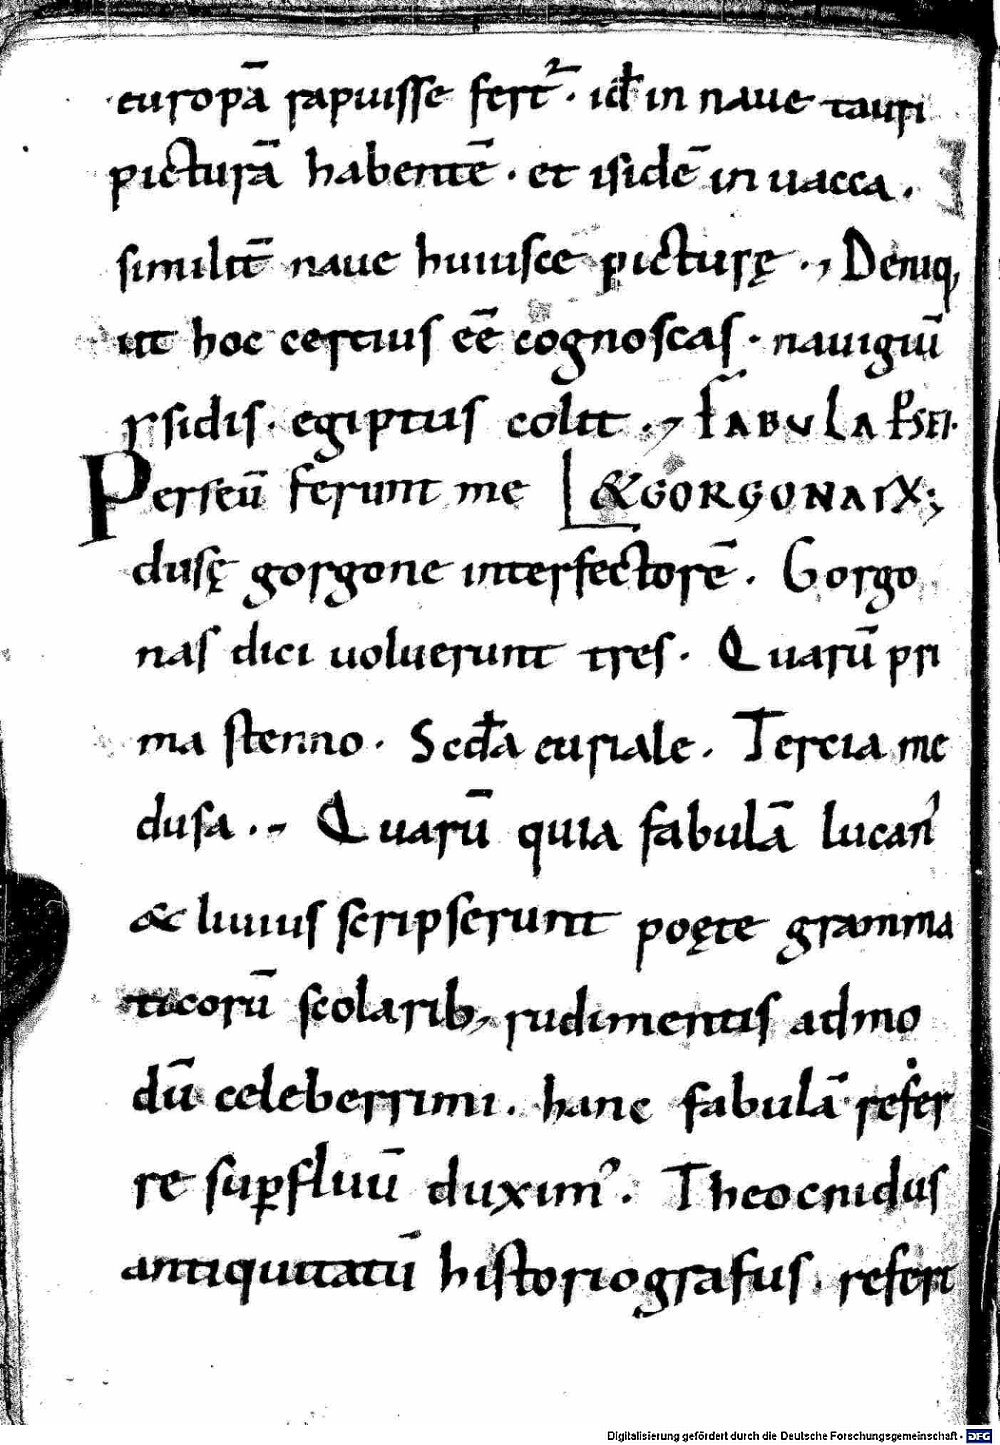 europā rapuisse fert᷑ · id̄ in naue tauri
picturā habentē · et isidē in uacca .
similit̄ naue huiusce picturę ., Deniq,
ut hoc certius eē cognoscas · nauigiū
ysidis · egiptus colit ., FABULA P̲SEI ·
Perseū ferunt me L &GORGONAIX;
dusę gorgone interfectorē . Gorgo
nas dici uoluerunt tres · Quarū pri
ma stenno · Scd̄a euriale . Tercia me
dusa ., Quarū quia fabulā lucan᾽
& liuius scripserunt poęte gramma
ticorū scolarib, rudimentis admo
dū celeberrimi . hanc fabulā refer
re suꝑfluū duxim᾽ . Theocnidus
antiquitatū historiografus . refert
Digitalisierung gefördert durch die Deutsche Forschungsgemeinschaft - DFG